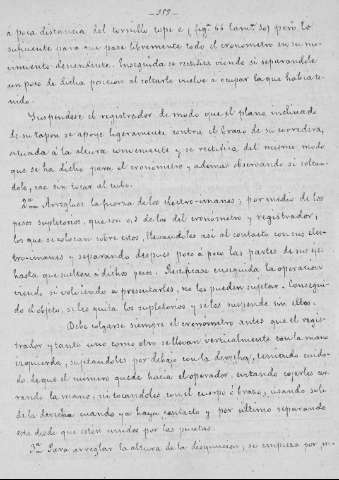 - 359 -
á poca distancia del tornillo tope c, (figª 66 lamª 30) pero lo
suficiente para que pase libremente todo el cronómetro en su mo-
vimiento descendente. Enseguida se rectifica viendo si separándole
un poco de dicha posición al soltarle vuelve á ocupar la que había te-
nido.
Suspendese el registrador de modo que el plano inclinado
de su tapon se apoye ligeramente contra el brazo de su corredera,
situada á la altura conveniente y se rectifica del mismo modo
que se ha dicho para el cronómetro y además observando si soltan-
dole, cae sin tocar al tubo.
2ª Arreglar la fuerza de los electro-imanes; por medio de los
pesos supletorios, que son 0,1 de los del cronómetro y registrador,
los que se colocan sobre estos, llevandoles así al contacto con sus elec-
tro-imanes y separando despues poco á poco las partes de sus eje
hasta que suelten á dichos pesos. Rectifíquese enseguida la operacion
viendo si volviendo á presentarles, no les pueden sujetar. Consegui-
do el objeto, se les quita los supletorios y se les suspende sin ellos.
Debe colgarse siempre el cronómetro antes que el regis-
trador y tanto uno como otro se llevan verticalmente con la mano
izquierda, sujetandoles por debajo con la derecha, teniendo cuida-
do de que el número quede hacia el operador, evitando cojerles cer-
rando la mano, ni tocandoles con el cuerpo ó brazo, usando solo
de la derecha cuando ya haya contacto y por último separando
esta desde que esten unidos por las puntas.
3ª Para arreglar la altura de la desyuncion, se empieza por p-